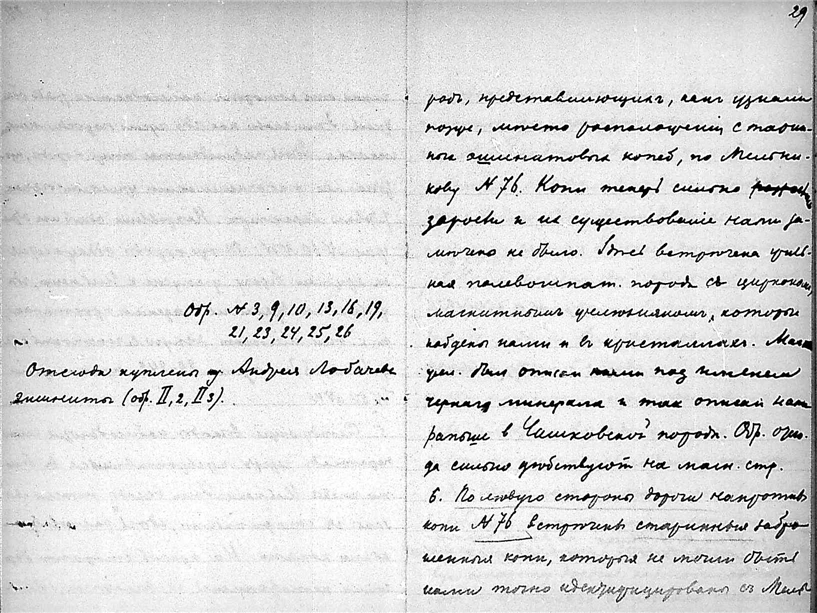 29
Обр. № 3, 9, 10, 13, 16, 19,
21, 23, 24, 25, 26
Отсюда куплены у Андрея Лобачева
эшиниты (обр. II, 2, II 3).
родъ, представляющихъ, какъ узнали
позже, мѣсто расположенія старин-
ныхъ эшинитовыхъ копей, по Мельни-
кову № 76. Копи теперь сильно
заросли и их существованіе нами за-
мѣчено не было. Здѣсь встрѣчена
ная полевошпат. порода съ цирконом,
магнитнымъ которые
найдены нами и въ кристаллахъ.
был описан нами под именем
чернаго минерала и так описан нами
раньше в Чашковской породѣ. Обр.
да сильно дѣйствуют на магн. стр.
6. По лѣвую стороны дороги напротив
копи № 76 встрѣчены старинныя забро-
шенныя копи, которыя не могли быть
нами точно идентифицированы съ Мель